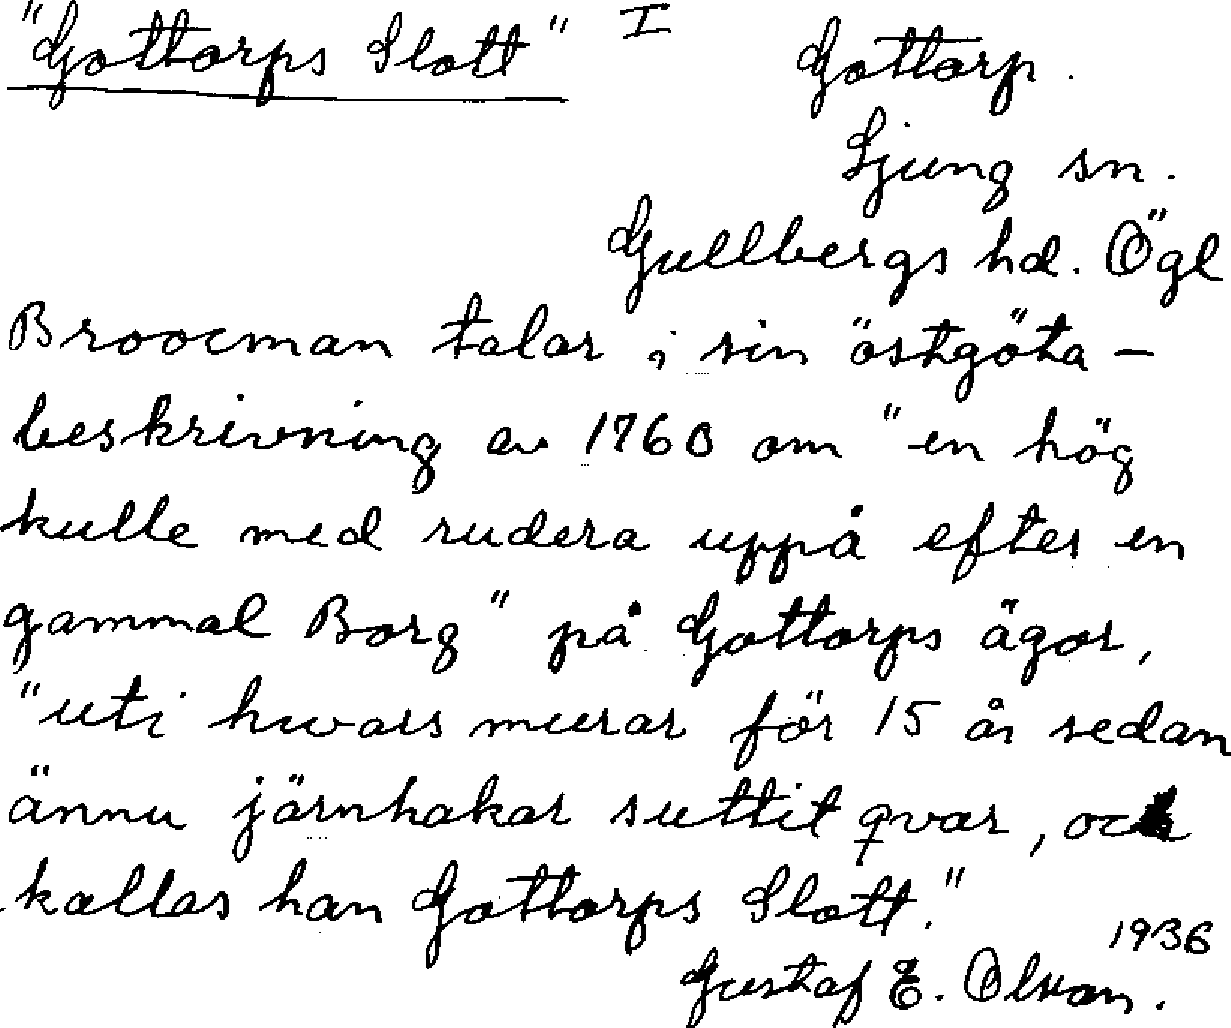 "Gottorps Slott" I
Gottorp.
Ljung sn.
Gullbergs hd. Ögl
Broocman talar i sin östgöta-
beskrivning av 1760 om "en hög
kulle med rudera uppå efter en
gammal Borg" på Gottorps ägor,
"uti hwars murar för 15 år sedan
ännu järnhakar suttit qvar, och
kallas han Gottorps Slott."
1936
Gustaf E. Olson.